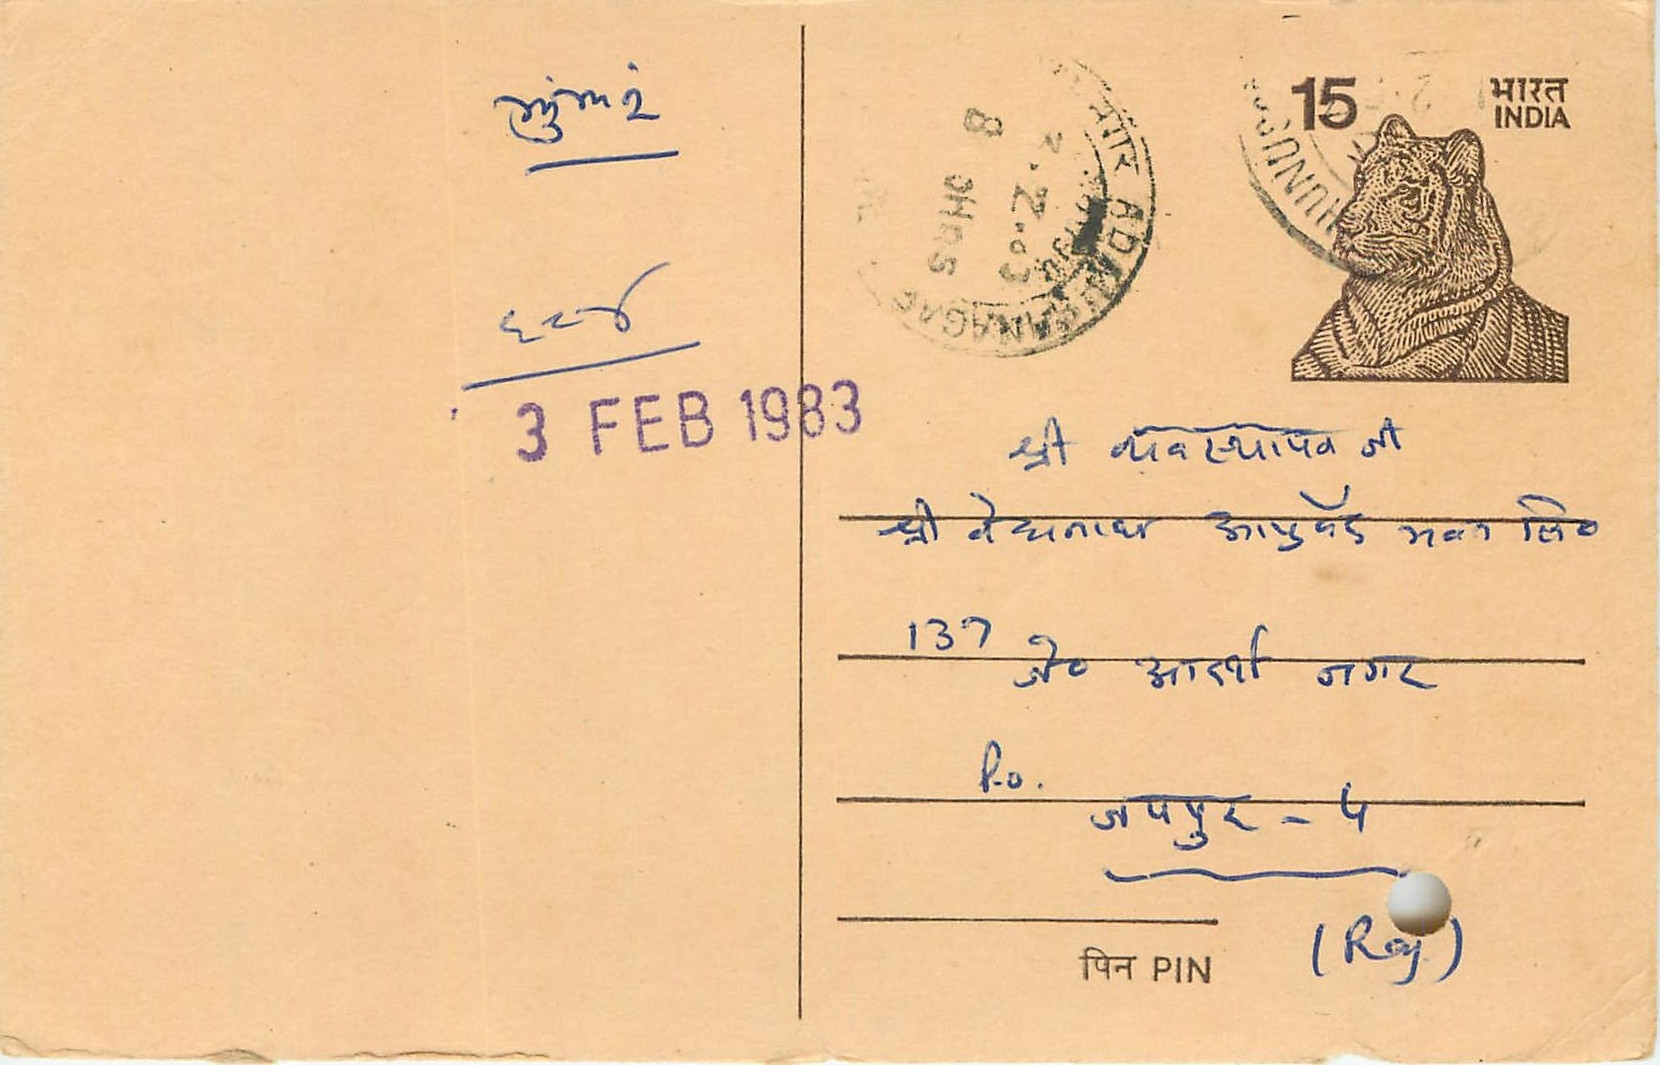 15 भारत
INDIA
3 FEB 1983
श्री व्यवस्थापक जी
श्री वैद्यनाथ आयुर्वेद भवन लि०
137
जे० आदर्श नगर
P.o.
जयपुर - ५
(Raj)
पिन PIN